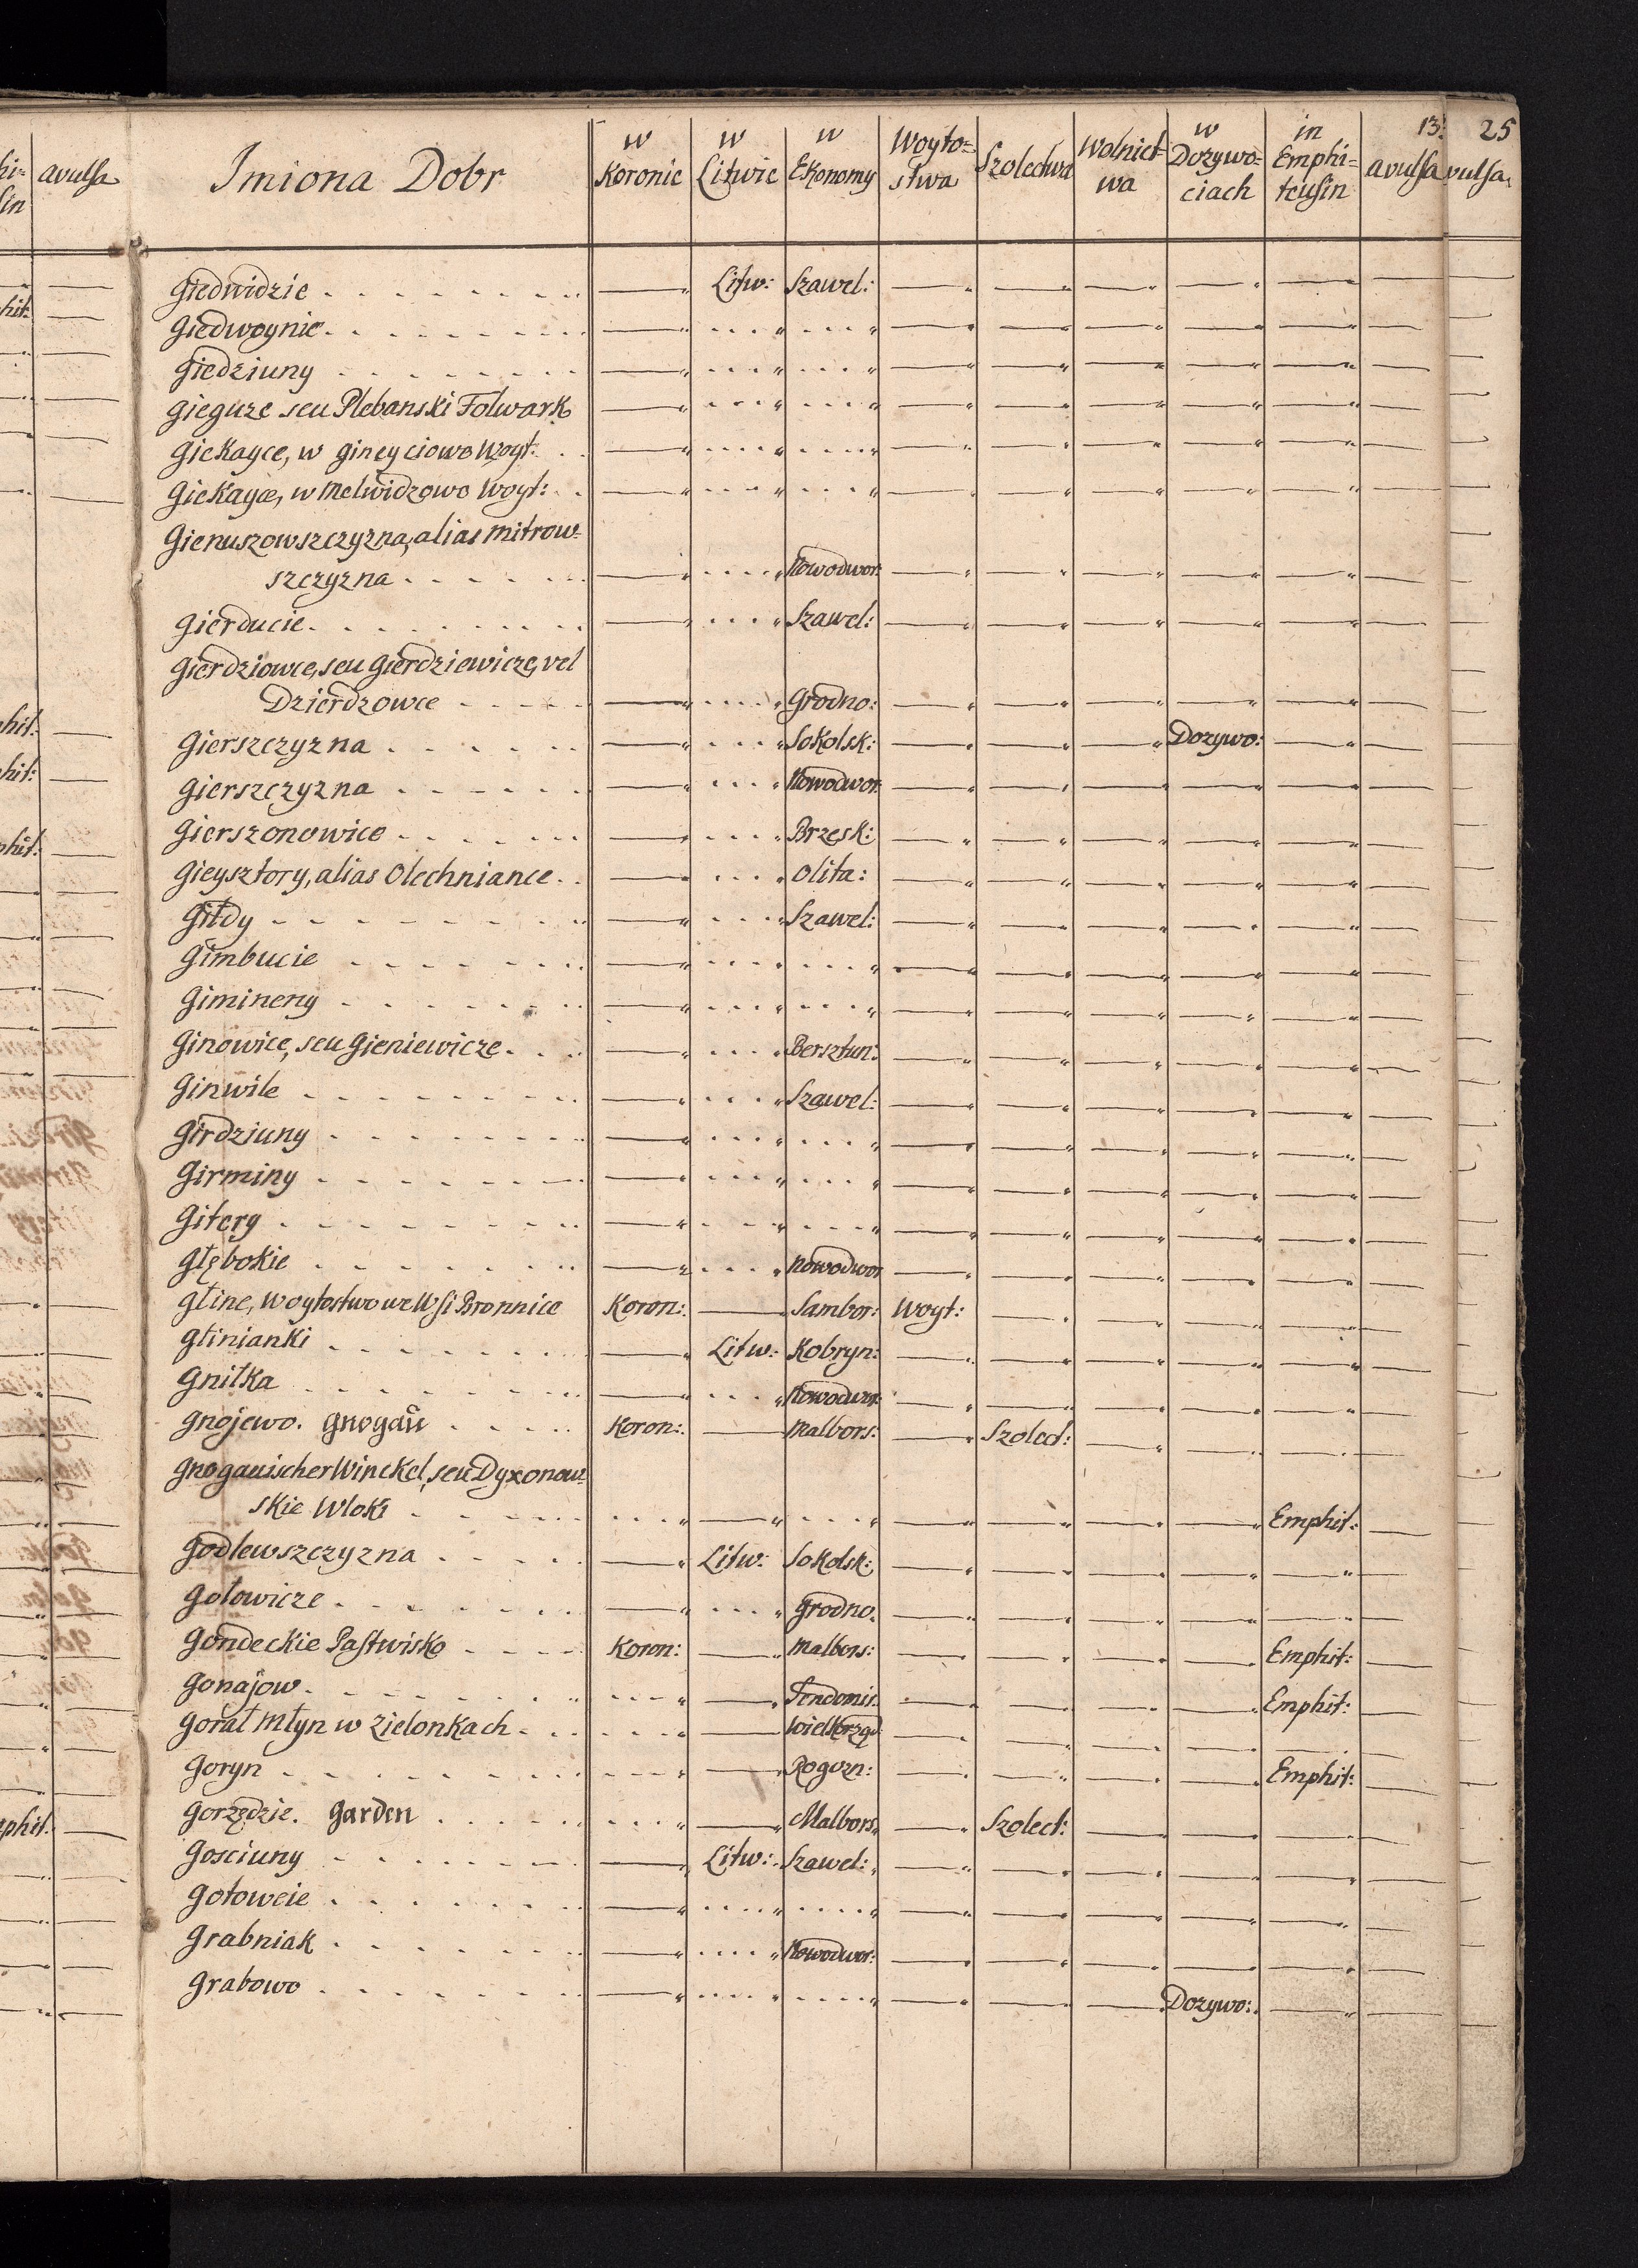 13. 25
Imiona Dobr | w Koronie | w Litwie | w Ekonomy | Woyto=stwa | Szolectwa | Wolnict=wa | w Dozywo=ciach | in Emphi=teusin | avulsa
Giedwidzie | Litw: | Szawel:
Giedwoynie
Giedziuny
Gieguze seu Plebanski Folwark
Giekayce, w Gineyciowo Woyt:
Giekayce, w Melwidzowo Woyt:
Gienuszowszczyzna, alias Mitrow=
szczyzna | Nowodwor:
Gierducie | Szawel:
Gierdziowce, seu Gierdziewicze, vel
Dzierdzowce | Grodno:
Gierszczyzna | Sokolsk: | Dozywo:
Gierszczyzna | Nowodwor:
Gierszonowice | Brzesk:
Gieysztory, alias Olechniance | Olita:
Giłdy | Szawel:
Gimbucie
Gimineny
Ginowice, seu Gieniewicze | Bersztun:
Ginwile | Szawel:
Girdziuny
Girminy
Gitery
Głębokie | Nowodwor
Gline, Woytostwo we Wsi Bronnice | Koron: | Sambor: | Woyt:
Glinianki | Litw: | Kobryn:
Gniłka | Nowodwor:
Gnojewo. Gnogau | Koron: | Malbors: | Szolect:
Gnogauischer Winckel, seu Dyxonow=
skie Wloki | Emphit:
Godlewszczyzna | Litw: | Sokolsk:
Gołowicze | Grodno.
Gondeckie Pastwisko | Koron: | Malbors: | Emphit:
Gonajow | Sendomir. | Emphit:
Gorał Młyn w Zielonkach | Wielkrząd
Goryn | Rogozn: | Emphit:
Gorzędzie. Garden | Malbors. | Szolect:
Gosciuny | Litw: | Szawel:
Gotowcie
Grabniak | Nowodwor:
Grabowo | Dozywo: